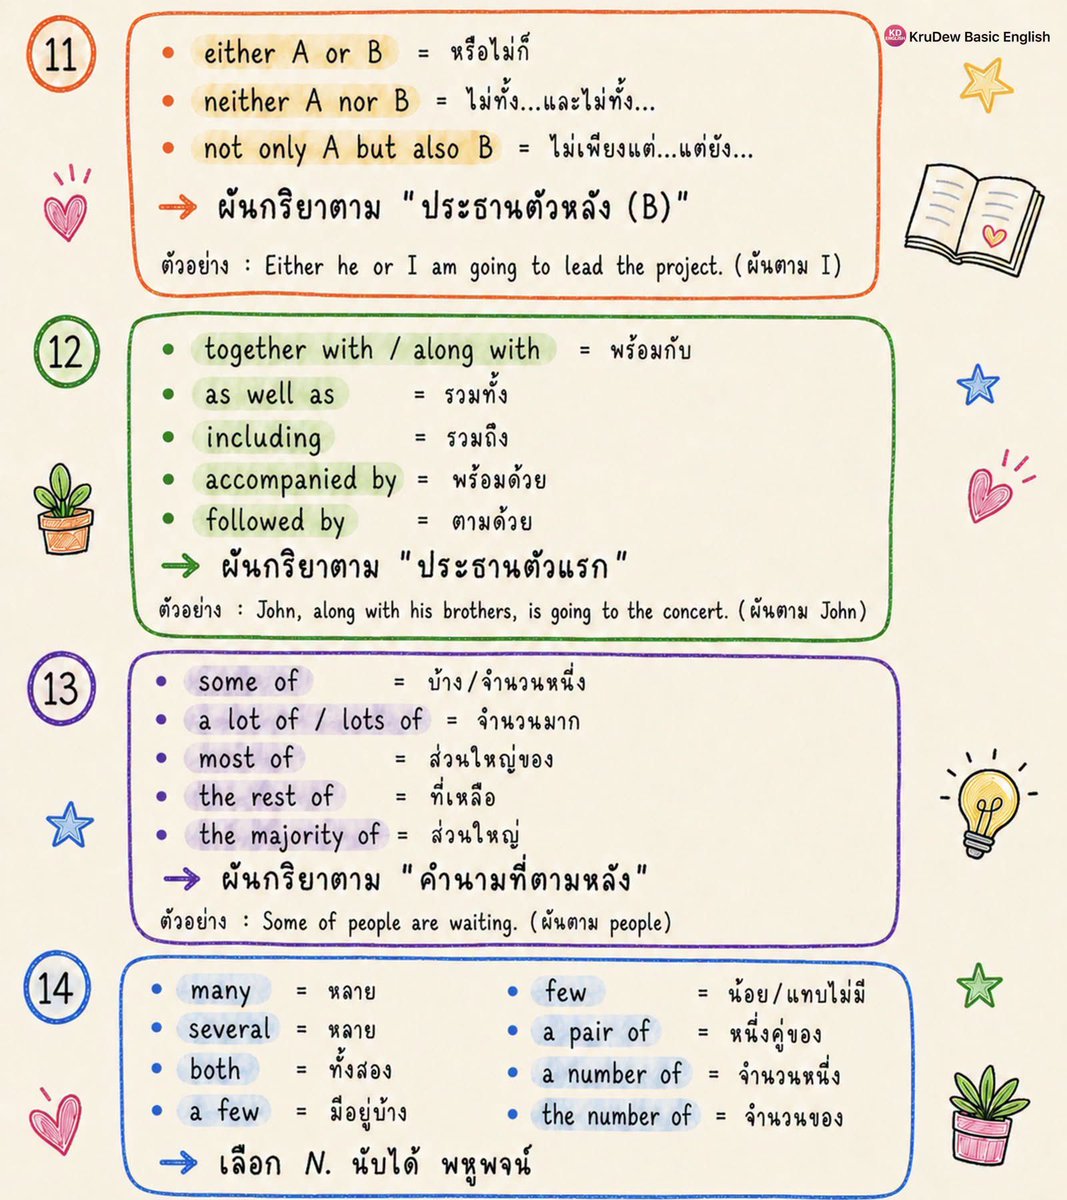 KD ENGLISH KruDew Basic English
11
• either A or B = หรือไม่ก็
• neither A nor B = ไม่ทั้ง...และไม่ทั้ง...
• not only A but also B = ไม่เพียงแต่...แต่ยัง...
→ ผันกริยาตาม "ประธานตัวหลัง (B)"
ตัวอย่าง : Either he or I am going to lead the project. (ผันตาม I)
12
• together with / along with = พร้อมกับ
• as well as = รวมทั้ง
• including = รวมถึง
• accompanied by = พร้อมด้วย
• followed by = ตามด้วย
→ ผันกริยาตาม "ประธานตัวแรก"
ตัวอย่าง : John, along with his brothers, is going to the concert. (ผันตาม John)
13
• some of = บ้าง/จำนวนหนึ่ง
• a lot of / lots of = จำนวนมาก
• most of = ส่วนใหญ่ของ
• the rest of = ที่เหลือ
• the majority of = ส่วนใหญ่
→ ผันกริยาตาม "คำนามที่ตามหลัง"
ตัวอย่าง : Some of people are waiting. (ผันตาม people)
14
• many = หลาย
• several = หลาย
• both = ทั้งสอง
• a few = มีอยู่บ้าง
• few = น้อย/แทบไม่มี
• a pair of = หนึ่งคู่ของ
• a number of = จำนวนหนึ่ง
• the number of = จำนวนของ
→ เลือก N. นับได้ พหูพจน์